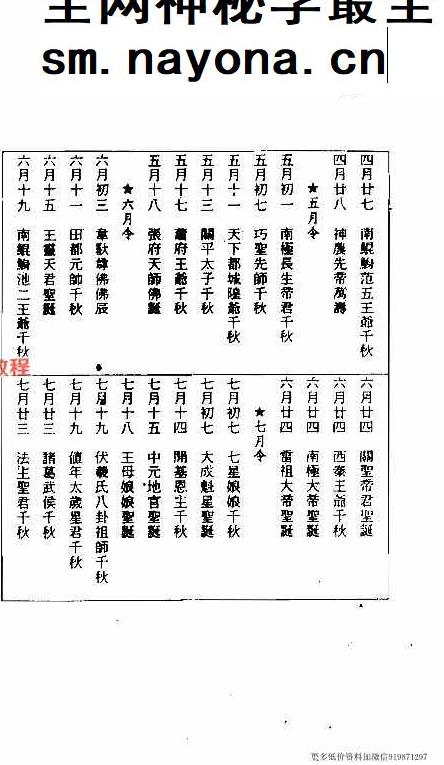 全网神秘学最全
sm.nayona.cn
四月廿七 南鯤鯓范五王爺千秋
四月廿八 神農先帝萬壽
★五月令
五月初一 南極長生帝君千秋
五月初七 巧聖先師千秋
五月十一 天下都城隍爺千秋
五月十三 關平太子千秋
五月十七 蕭府王爺千秋
五月十八 張府天師佛誕
★六月令
六月初三 韋馱尊佛佛辰
六月十一 田都元帥千秋
六月十五 王靈天君聖誕
六月十九 南鯤鯓池二王爺千秋
六月廿四 關聖帝君聖誕
六月廿四 西秦王爺千秋
六月廿四 南極大帝聖誕
六月廿四 雷祖大帝聖誕
★七月令
七月初七 七星娘娘千秋
七月初七 大成魁星聖誕
七月十四 開基恩主千秋
七月十五 中元地官聖誕
七月十八 王母娘娘聖誕
七月十九 伏羲氏八卦祖師千秋
七月十九 值年太歲星君千秋
七月廿三 諸葛武侯千秋
七月廿三 法主聖君千秋
教程
更多低价资料加微信919871297